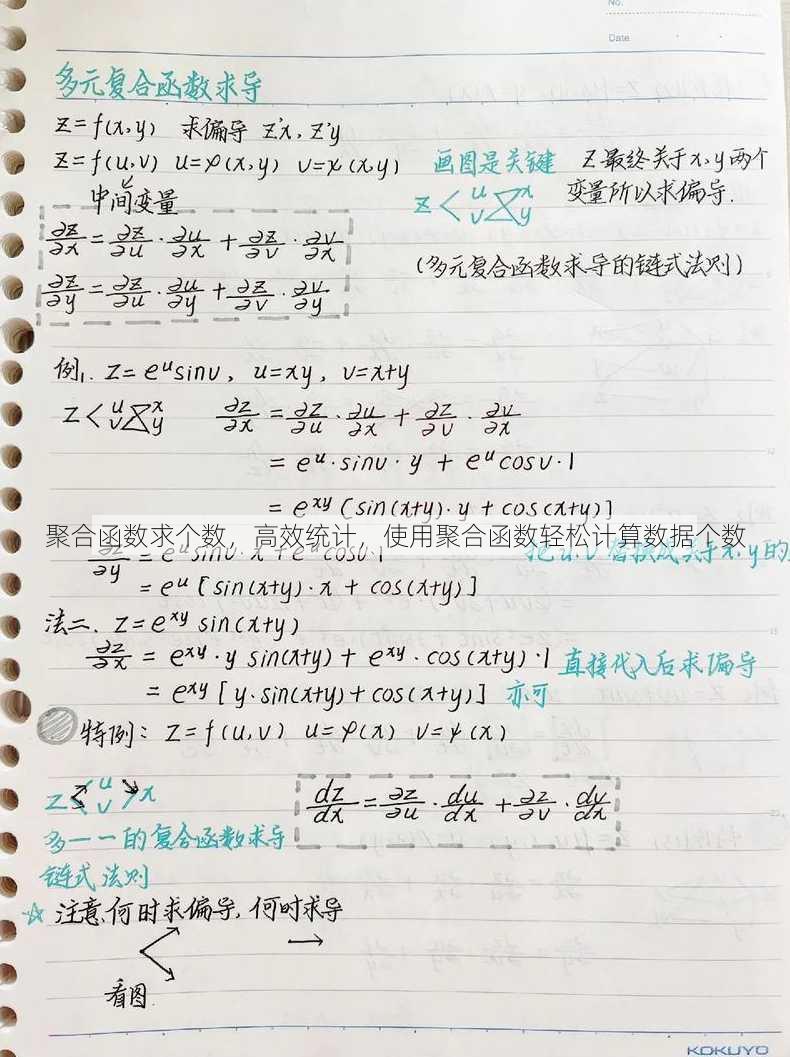 No.
Date
多元复合函数求导
Z=f(x,y) 求偏导 z'x, z'y
Z=f(u,v) u=φ(x,y) v=ψ(x,y) 画图是关键 Z最终关于x,y两个
中间变量 Z< u v x y 变量所以求偏导.
∂z/∂x=∂z/∂u·∂u/∂x+∂z/∂v·∂v/∂x
(多元复合函数求导的链式法则)
∂z/∂y=∂z/∂u·∂u/∂y+∂z/∂v·∂v/∂y
例1. Z=e^u sinv, u=xy, v=x+y
Z< u v x y ∂z/∂x=∂z/∂u·∂u/∂x+∂z/∂v·∂v/∂x
=e^u·sinv·y+e^u cosv·1
=e^xy[sin(x+y)·y+cos(x+y)]
聚合函数求个数，高效统计，使用聚合函数轻松计算数据个数
∂z/∂y=e^u sinv·x+e^u cosv·1 把u,v替换成关于x,y的
=e^u[sin(x+y)·x+cos(x+y)]
法二. Z=e^xy sin(x+y)
∂z/∂x=e^xy·y sin(x+y)+e^xy·cos(x+y)·1 直接代入后求偏导
=e^xy[y·sin(x+y)+cos(x+y)] 亦可
特例: Z=f(u,v) u=φ(x) v=ψ(x)
Z< u v >x dz/dx=∂z/∂u·du/dx+∂z/∂v·dv/dx
多一一的复合函数求导
链式法则
☆ 注意,何时求偏导,何时求导
看图
KOKUYO